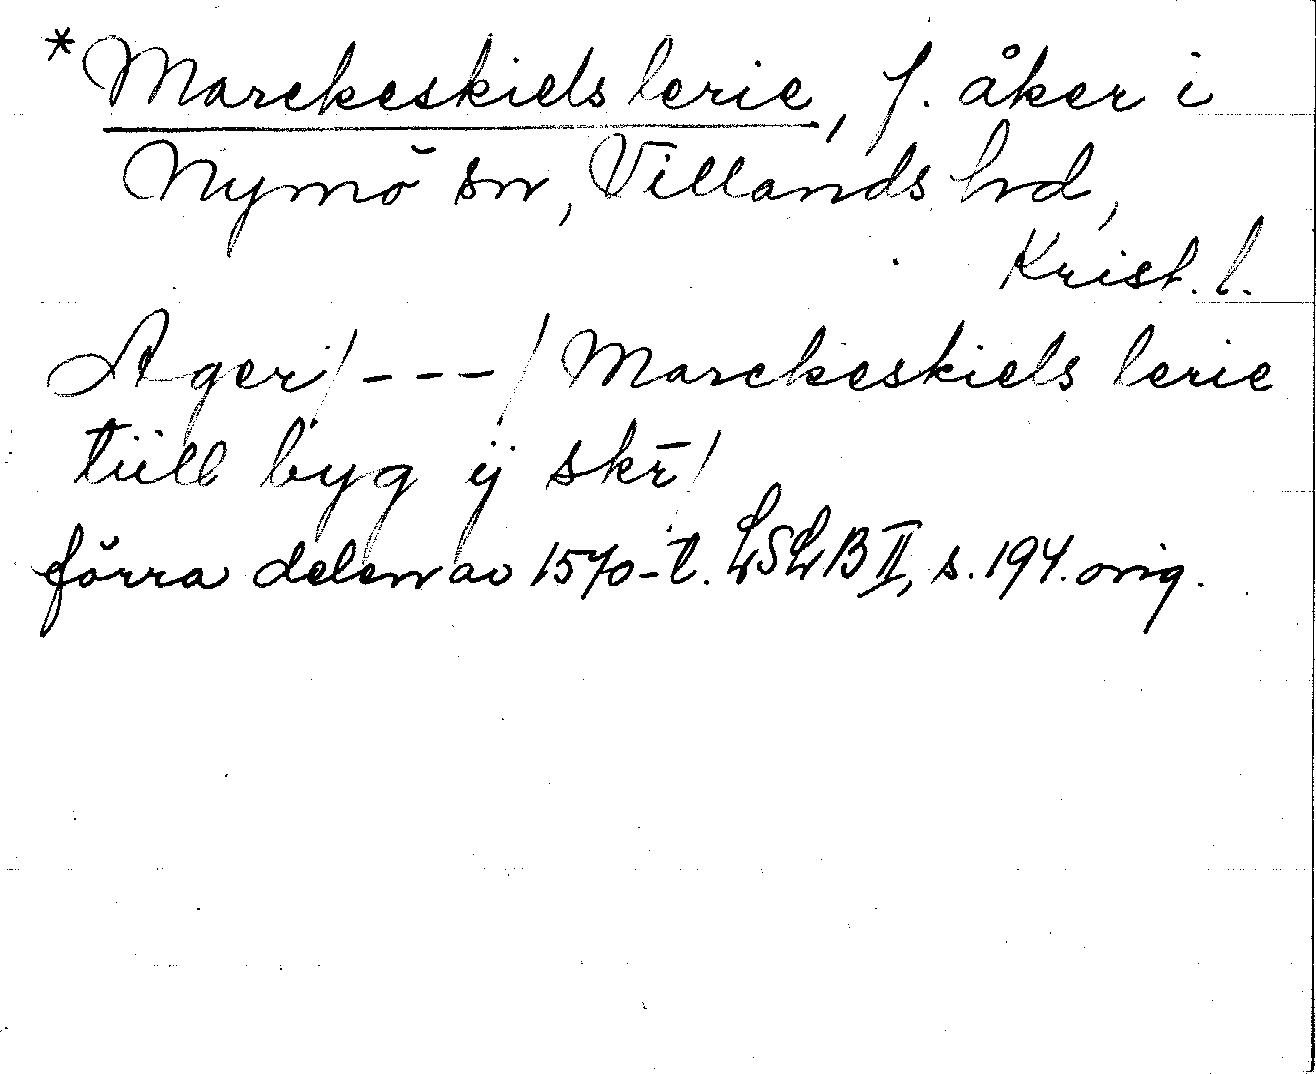 *Marckeskiels lerie, f. åker i
Nymö sn, Villands hd,
Krist. l.
Ager/---/Marckeskiels lerie
tiill byg ij skr̄/
förra delen av 1570-t. LSLB II, s. 194. orig.